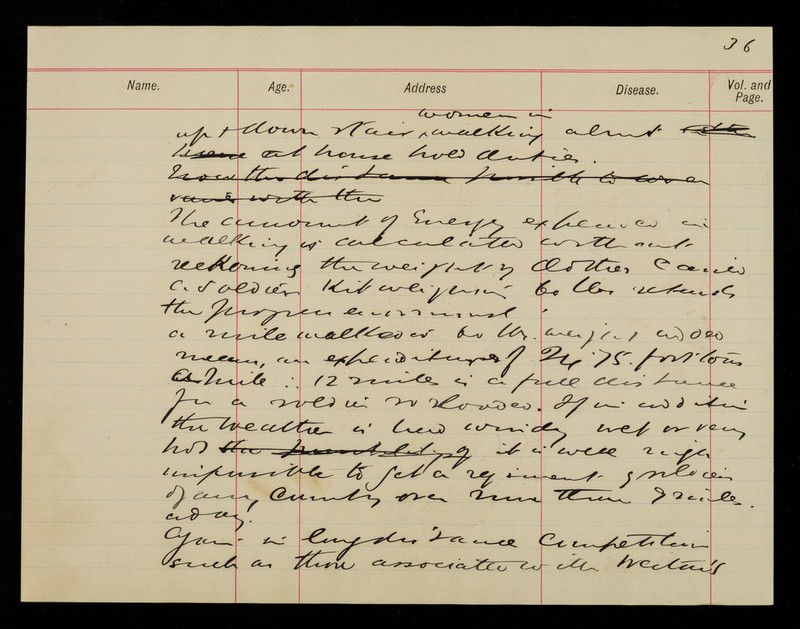 36
Name. Age. Address Disease. Vol. and Page.
women in
up & down stairs, walking about
at house hold duties.
how the distance possible to cover
with the
The amount of Energy expended in
walking is calculated without
reckoning the weight of clothes carried
a soldiers Kit weighing 60 lbs retards
the progress enormously
a mile walked 60 lbs. weight added
means, an expenditure of 24.75 foot tons
a mile ∴ 12 miles is a full distance
for a soldier so loaded. If in addition
the weather is windy wet or very
hot the possibility of it is well nigh
impossible to get a regiment of soldiers
of any Country over more than 9 miles
a day.
Again in long distance Competitions
such as those associated with Weston's